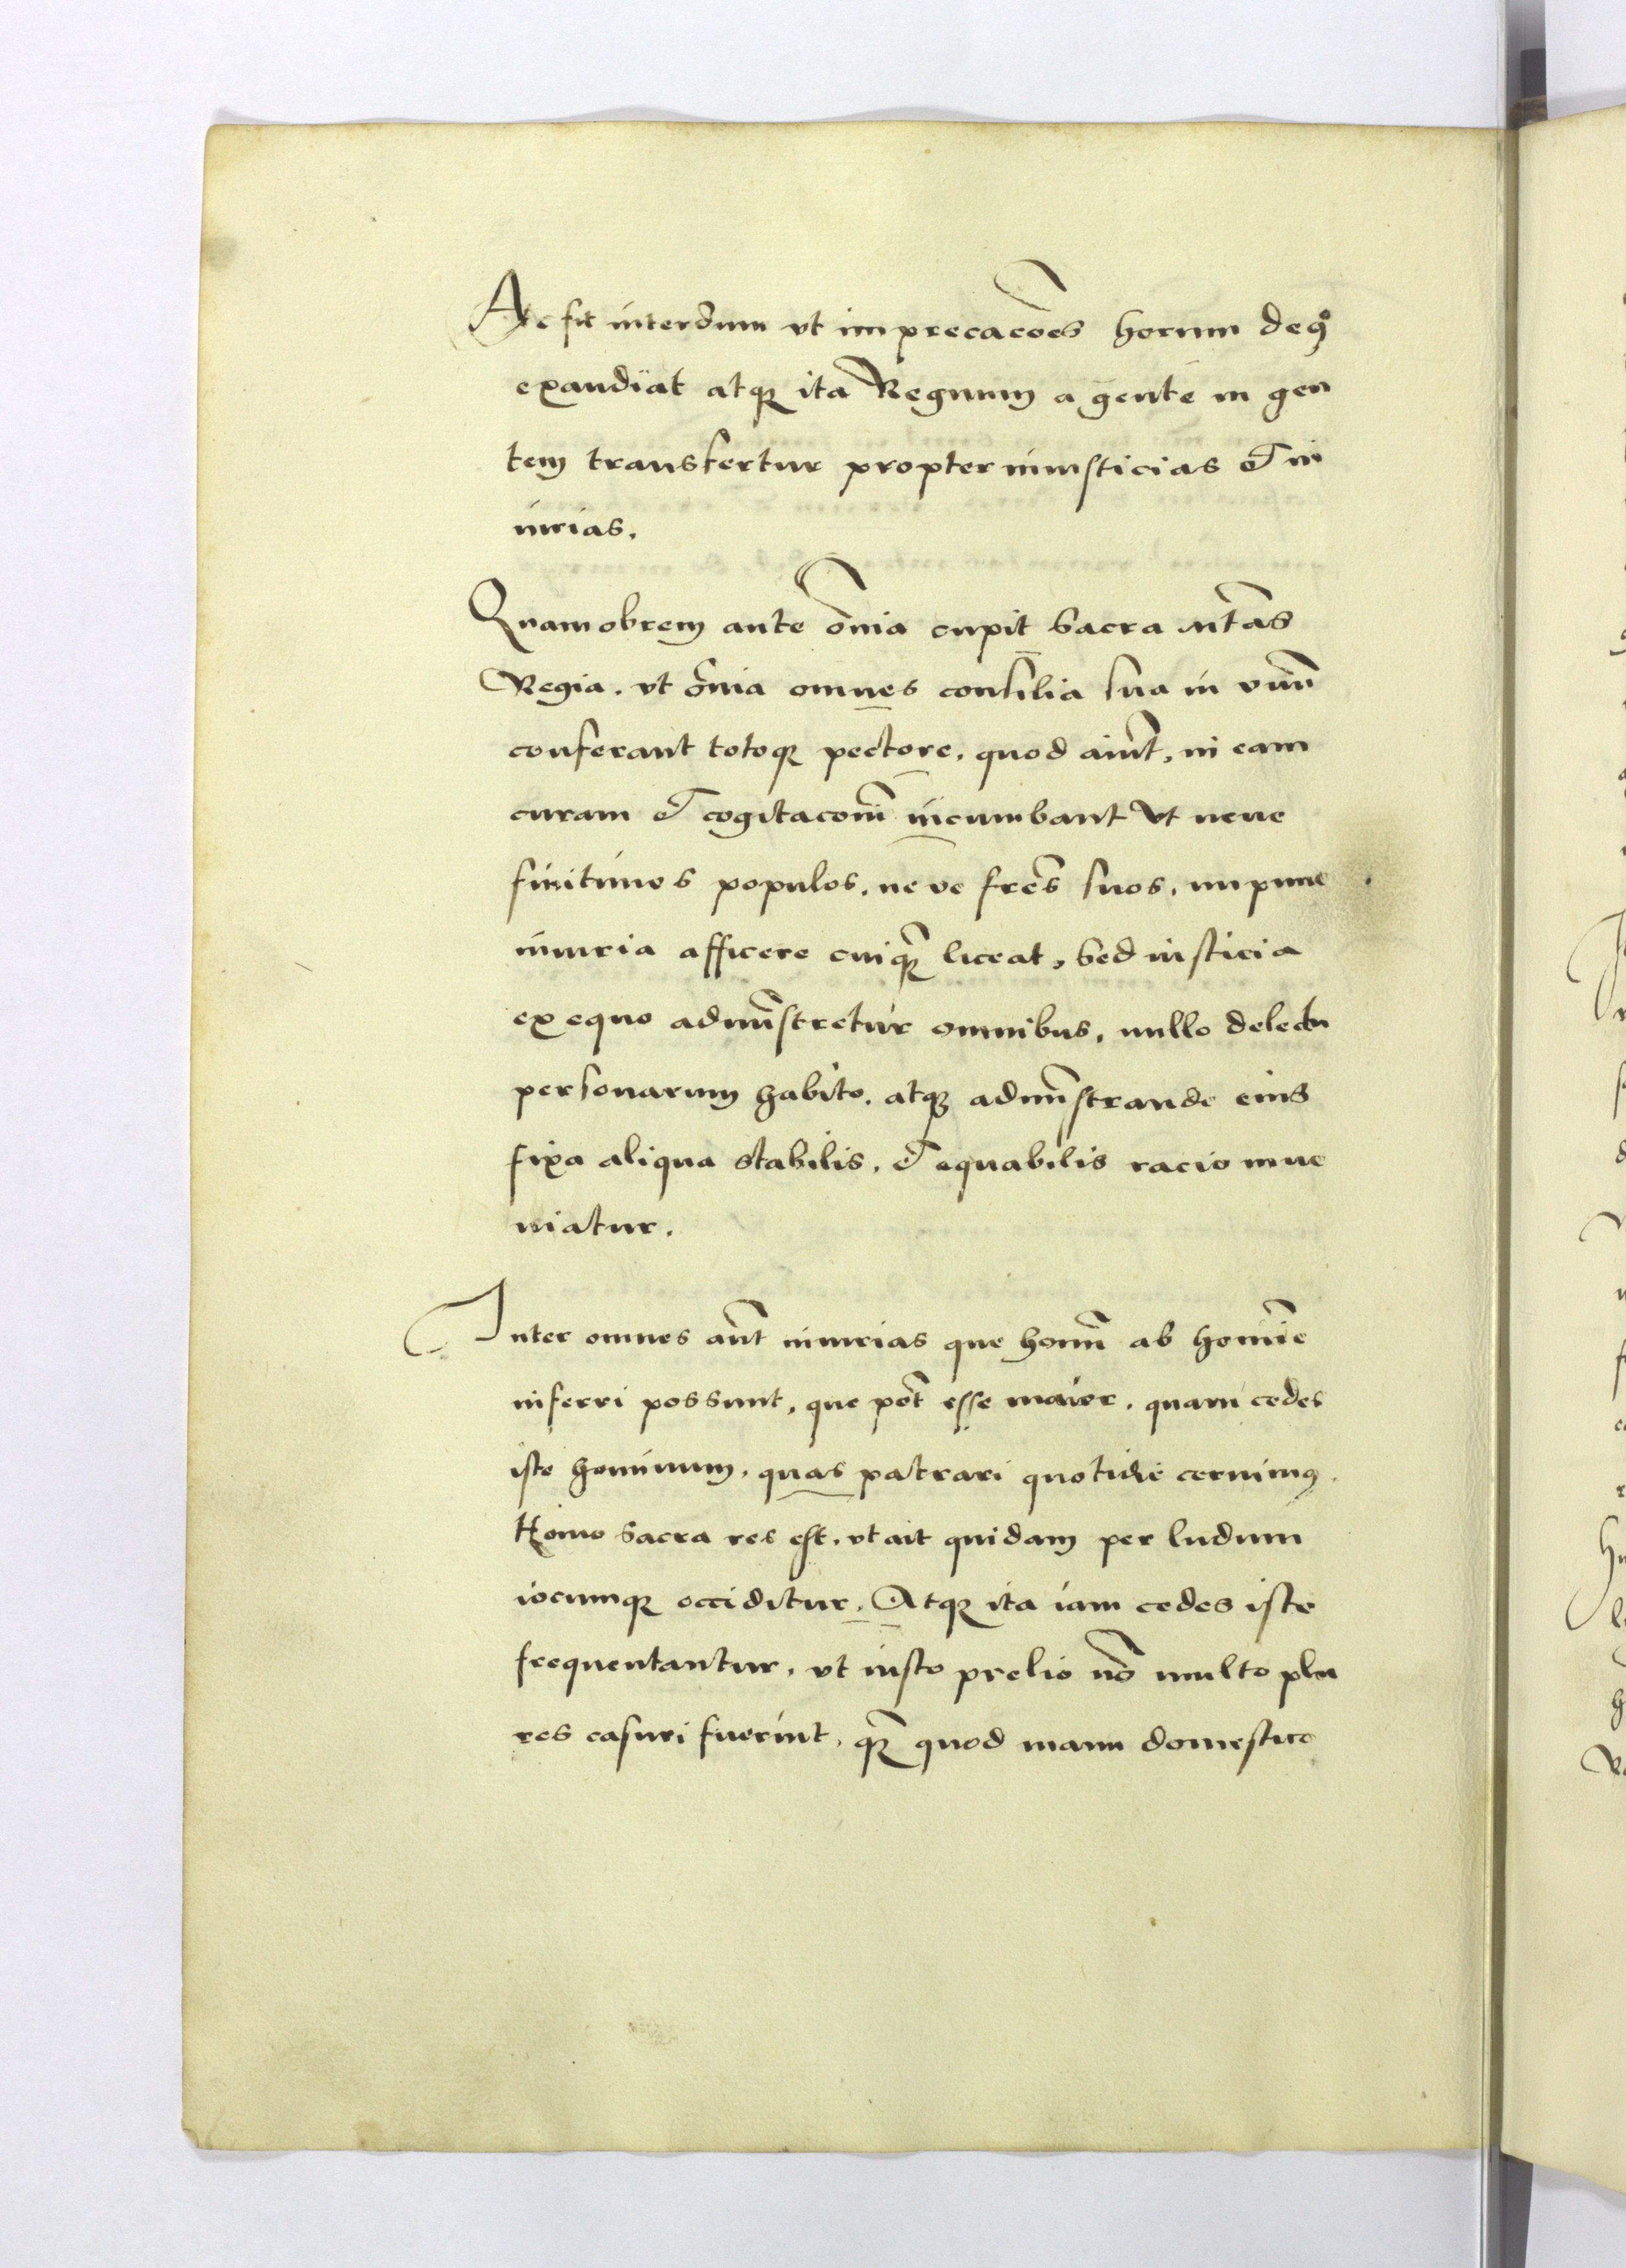 Ac fit interdum vt imprecacōes horum deꝰ
exaudiat atqꝫ ita Regnum a gente in gen
tem transfertur propter iniusticias et in
iurias.
Quamobrem ante ōnia cupit Sacra Mtās
Regia. vt ōnia omnes consilia sua in vnū
conferant totoqꝫ pectore, quod aiūt, in eam
curam et cogitacōnē incumbant vt neue
finitimos populos, neve frēs suos, impune
iniuria afficere cuiqꝫ̄ liceat, sed iusticia
ex equo admīstretur omnibus, nullo delectu
personarum habito, atqꝫ admīstrande eius
fixa aliqua stabilis, et equabilis racio inue
niatur.
Inter omnes aūt iniurias que homī ab homīe
inferri possunt, que pōt esse maior, quam cedes
iste hominum, quas patrari quotidie cernimꝰ.
Homo sacra res est, vt ait quidam per ludum
iocumqꝫ occiditur. Atqꝫ ita iam cedes iste
frequentantur, vt iusto prelio nō multo plu
res casuri fuerint, qꝫ̄ quod manu domestica